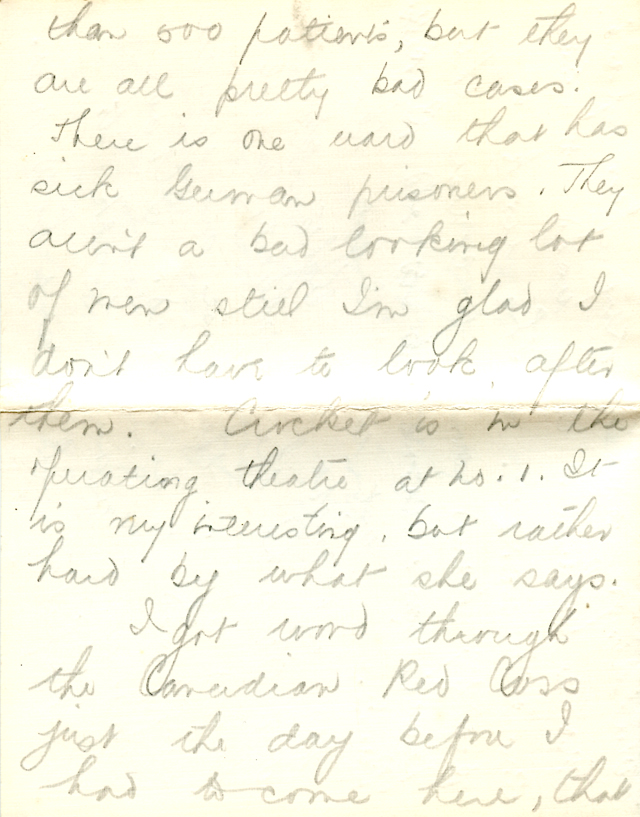 than 500 patients, but they
are all pretty bad cases.
There is one ward that has
sick German prisoners. They
aren't a bad looking lot
of men still I'm glad I
don't have to look after
them. Crocket is in the
operating theatre at No. 1. It
is very interesting, but rather
hard by what she says.
I got word through
the Canadian Red Cross
just the day before I
had to come here, that